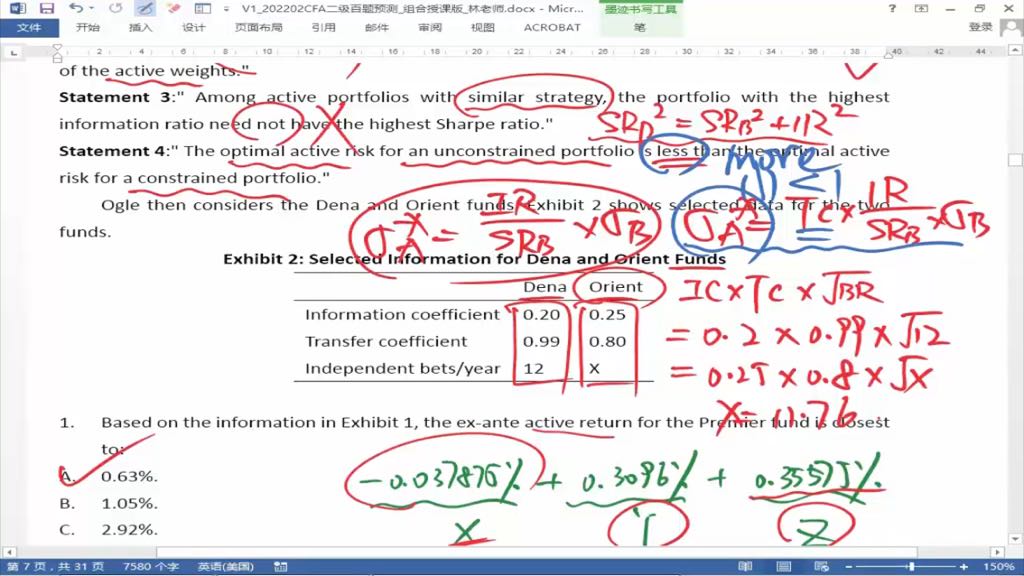 V1_202202CFA二级百题预测_组合授课版_林老师.docx - Micr...
墨迹书写工具
文件 开始 插入 设计 页面布局 引用 邮件 审阅 视图 ACROBAT 笔 登录
2 4 6 8 10 12 14 16 18 20 22 24 26 28 30 32 34 36 38 40 42 44
of the active weights."
Statement 3:" Among active portfolios with similar strategy, the portfolio with the highest
information ratio need not have the highest Sharpe ratio."
SRp² = SRB² + IR²
Statement 4:" The optimal active risk for an unconstrained portfolio is less than the optimal active
more
risk for a constrained portfolio."
<1
Ogle then considers the Dena and Orient funds. Exhibit 2 shows selected data for the two
funds.
σA* = IR/SRB × σB
σA* = TC × IR/SRB × σB
Exhibit 2: Selected Information for Dena and Orient Funds
Dena Orient
IC × TC × √BR
Information coefficient 0.20 0.25
= 0.2 × 0.99 × √12
Transfer coefficient 0.99 0.80
Independent bets/year 12 X
= 0.25 × 0.8 × √X
X = 11.76
1. Based on the information in Exhibit 1, the ex-ante active return for the Premier fund is closest
to:
A. 0.63%.
-0.037875% + 0.3096% + 0.35575%
B. 1.05%.
C. 2.92%.
X Y Z
第 7 页，共 31 页 7580 个字 英语(美国) 150%